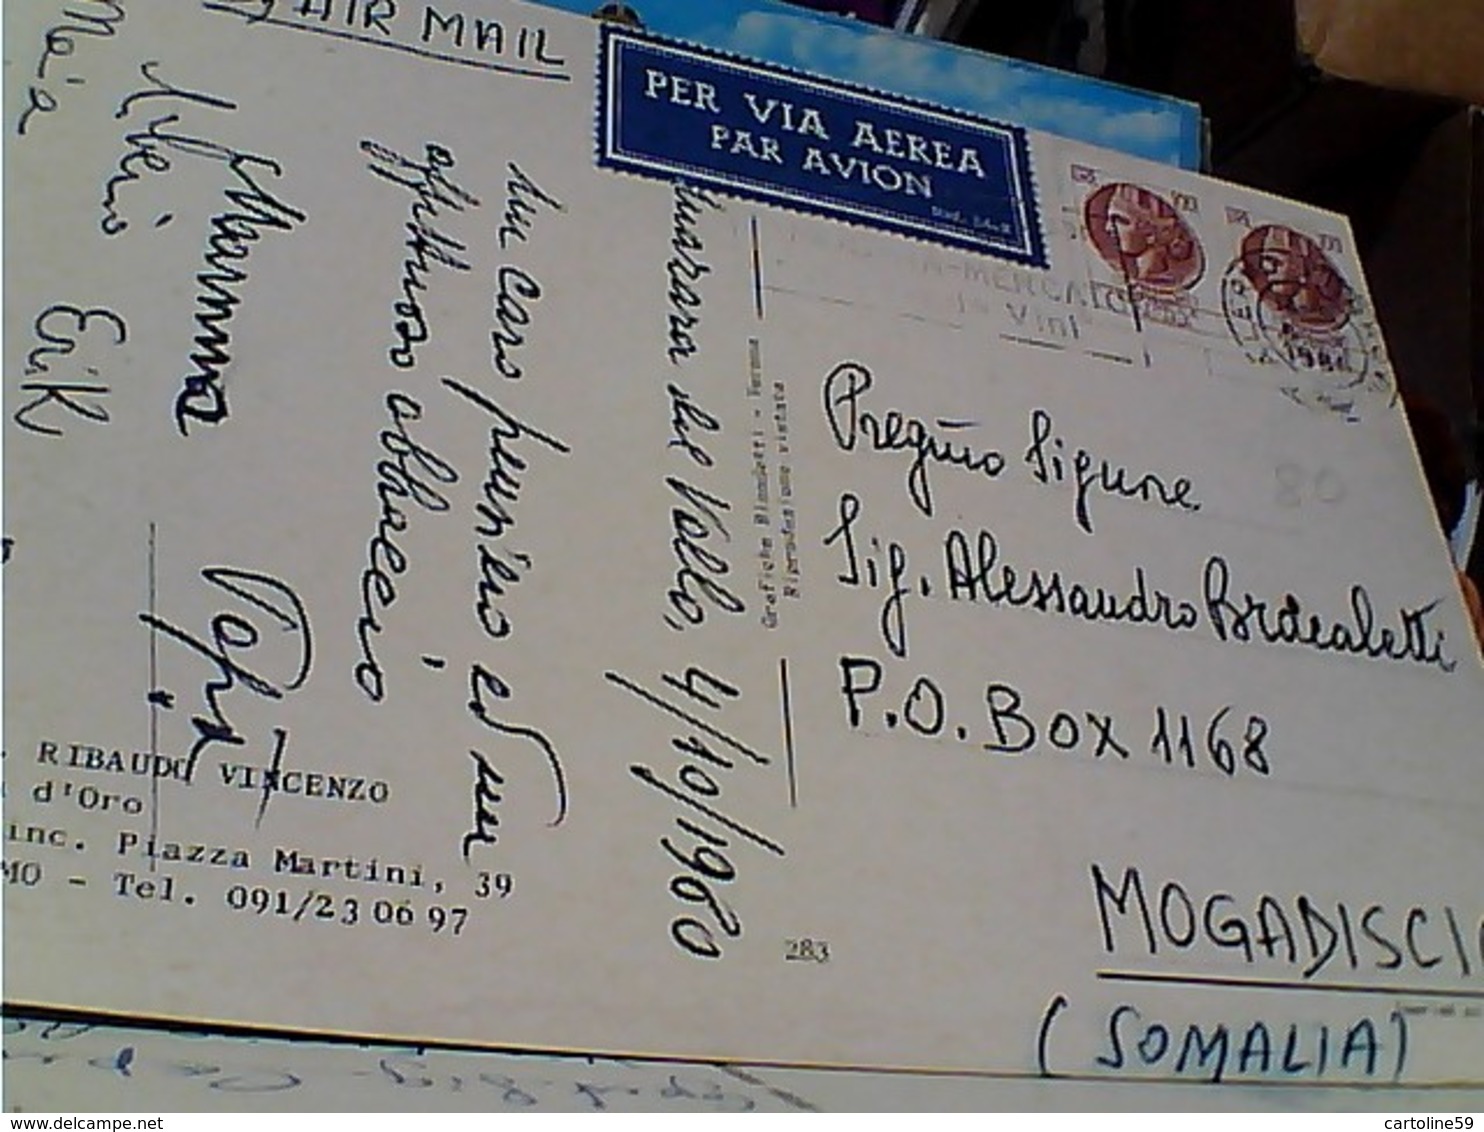 AIR MAIL
PER VIA AEREA
PAR AVION
Mazara del Vallo, 4/10/1980
un caro pensiero ed un
affettuoso abbraccio
Mamma Papà
Erik
Grafiche Biondetti - Verona
Riproduzione vietata
283
80
Pregmo Signore
Sig. Alessandro Bracaletti
P.O. Box 1168
MOGADISCIO
(SOMALIA)
RIBAUDO VINCENZO
d'Oro
inc. Piazza Martini, 39
MO - Tel. 091/23 06 97
www.delcampe.net
cartoline59